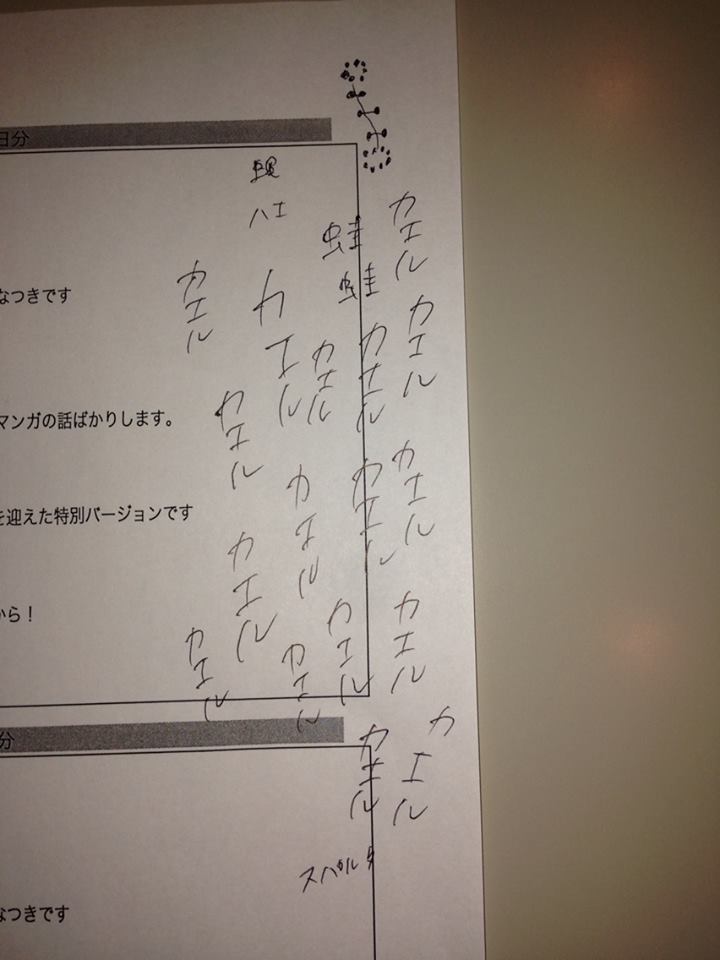 日分
蝿
ハエ
カエル
蛙
蛙
カエル
カエル
なつきです
カエル
カエル
カエル
カエル
マンガの話ばかりします。
カエル
カエル
カエル
カエル
を迎えた特別バージョンです
カエル
から！
カエル
カエル
カエル
カエル
分
カエル
カエル
スパルタ
なつきです